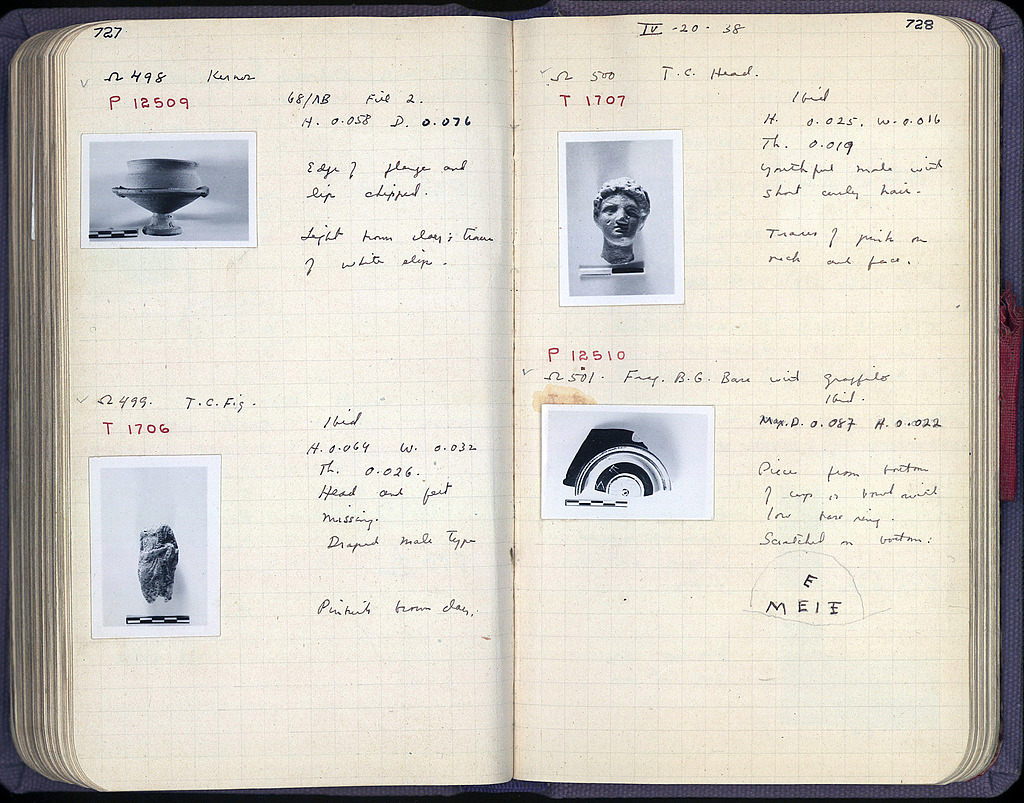 727
Ω 498 Kernos
P 12509
68/ΛB Fill 2.
H. 0.058 D. 0.076
Edge of flange and
lip chipped.
Light brown clay; traces
of white slip.
Ω 499. T.C. Fig.
T 1706
Ibid
H. 0.064 W. 0.032
Th. 0.026.
Head and feet
missing.
Draped male type
Pinkish brown clay.
IV - 20 - 38
728
Ω 500 T.C. Head.
T 1707
Ibid
H. 0.025. W. 0.016
Th. 0.019
Youthful male with
short curly hair.
Traces of pink on
neck and face.
P 12510
Ω 501. Frag. B.G. Base with graffito
Ibid.
Max. D. 0.087 H. 0.022
Piece from bottom
of cup or bowl with
low base ring.
Scratched on bottom:
E
MEIE